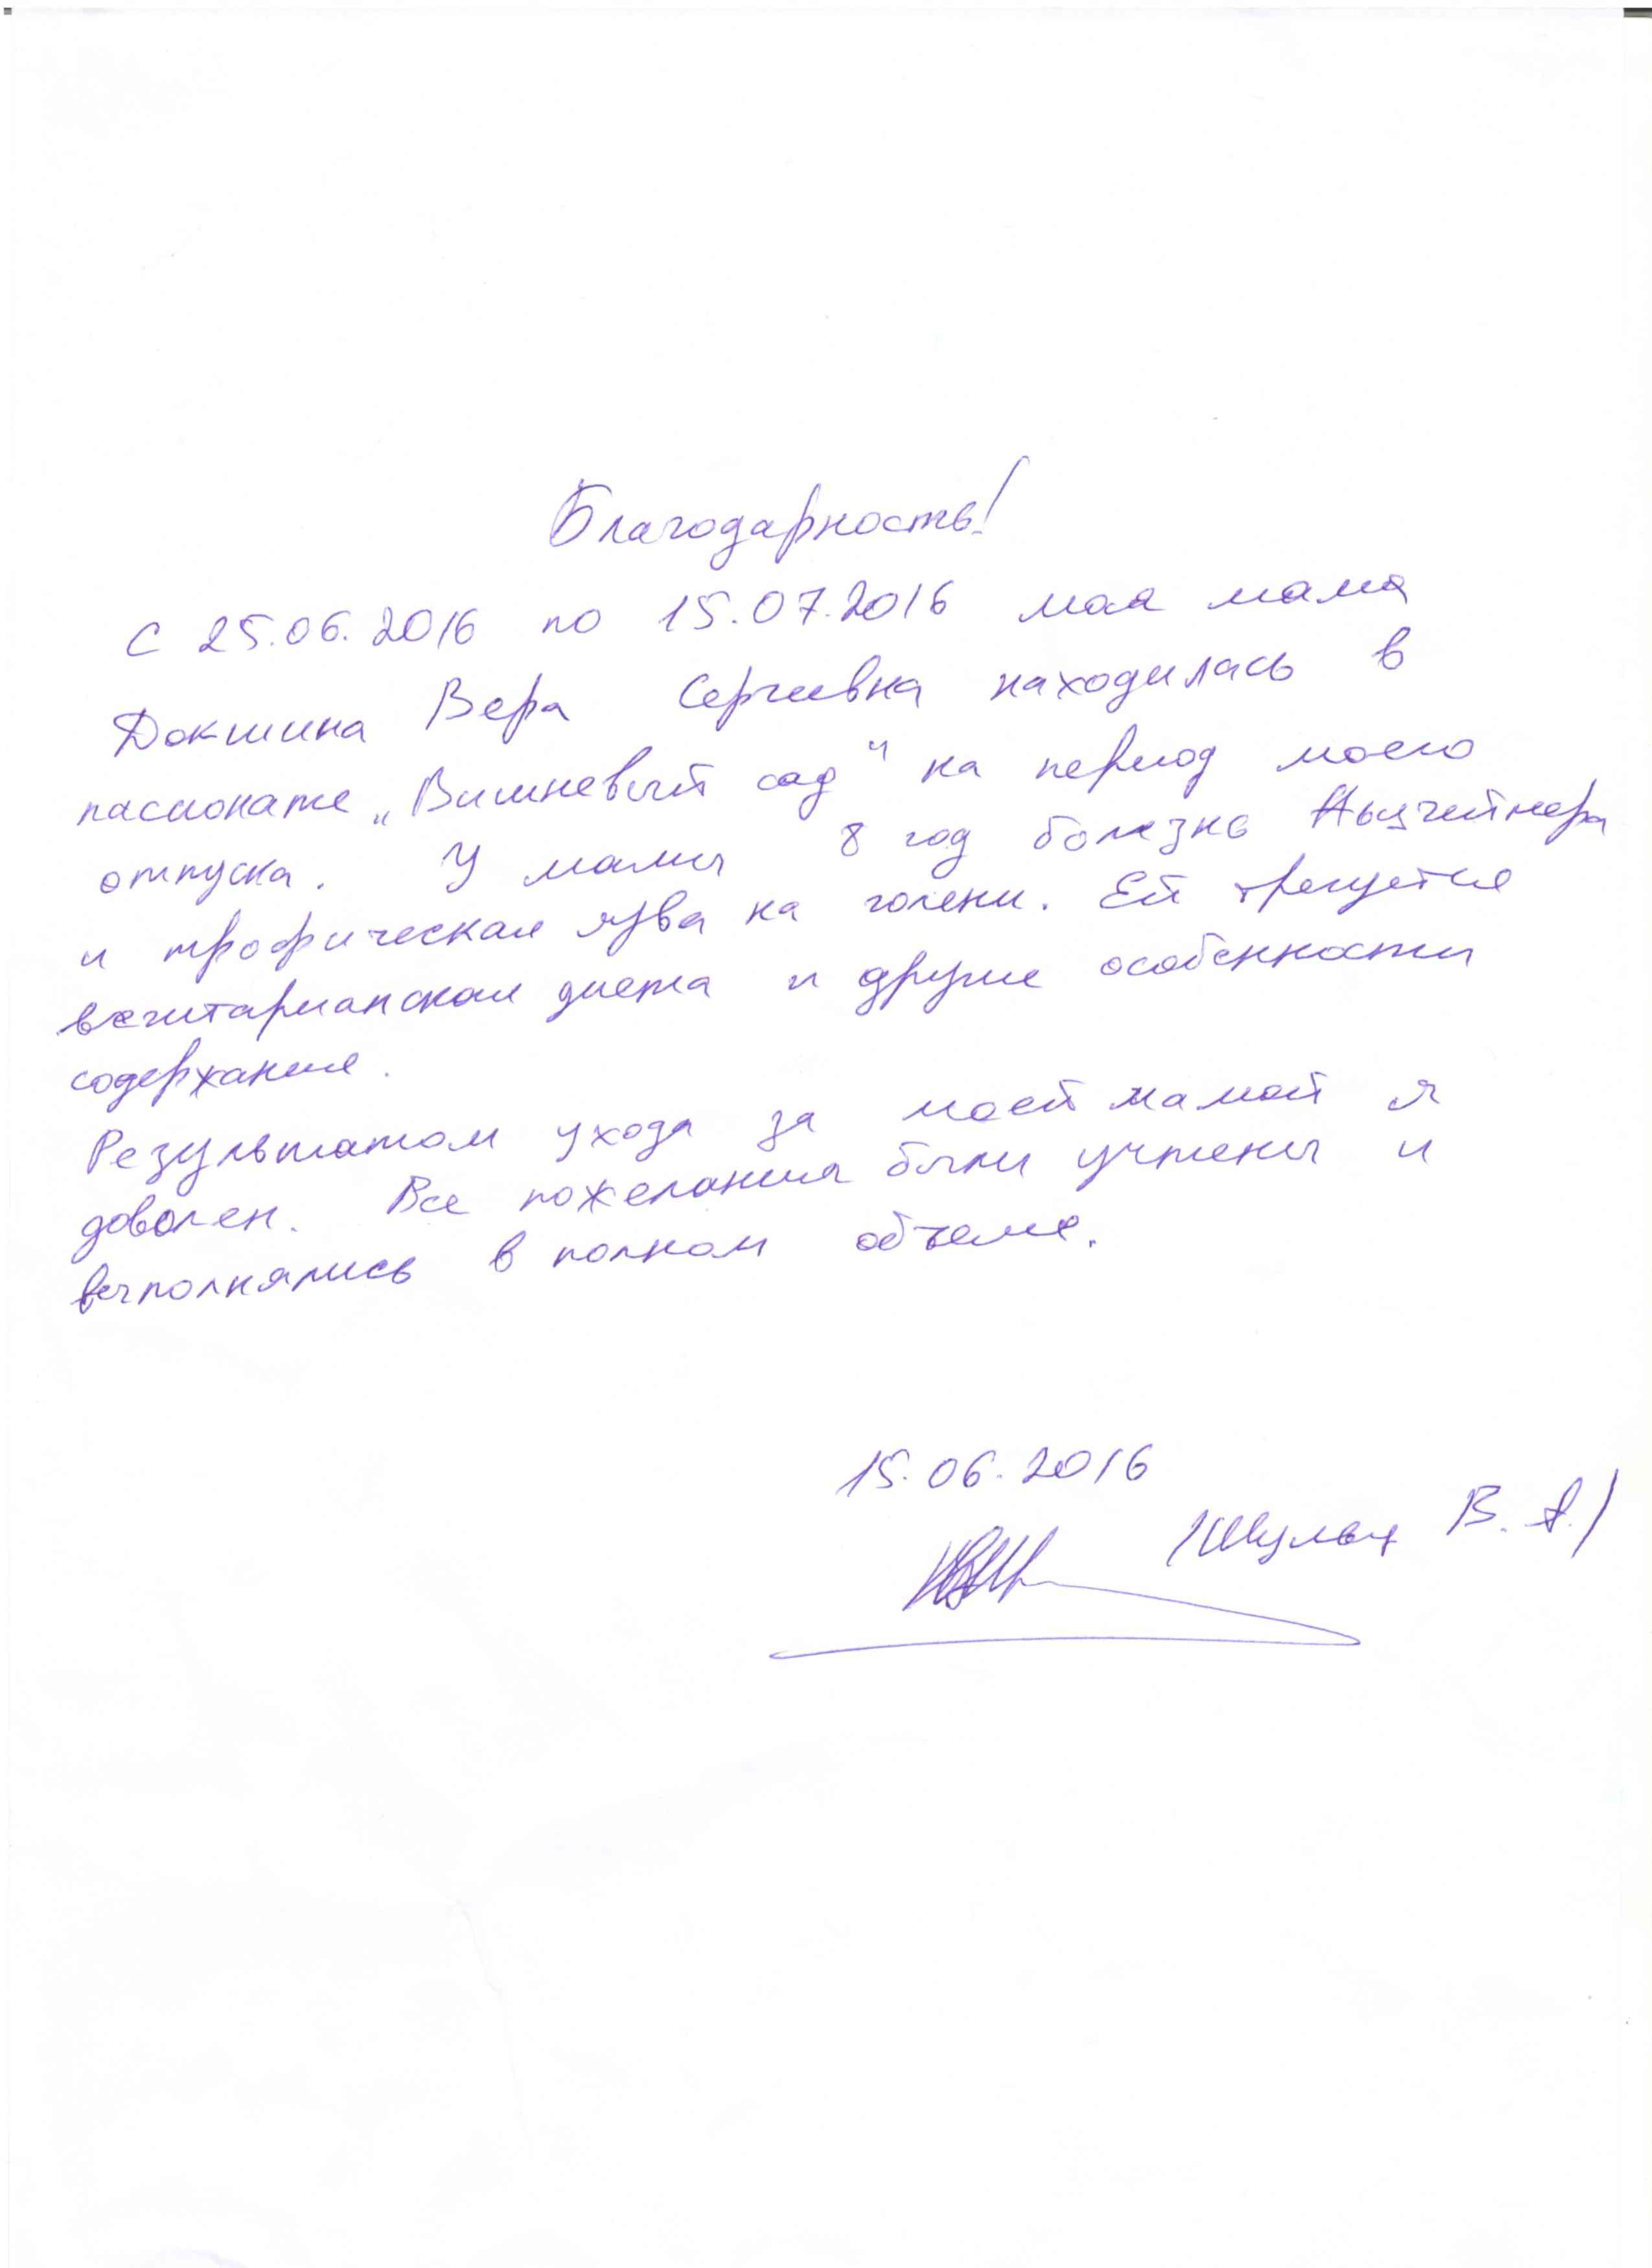 Благодарность!
С 25.06.2016 по 15.07.2016 моя мама
Докшина Вера Сергеевна находилась в
пасионате „Вишневый сад" на период моего
отпуска. У мамы 8 год болезнь Альцгеймера
и трофическая язва на голени. Ей требуется
вегитарианская диета и другие особенности
содержание.
Результатом ухода за моей мамой я
доволен. Все пожелания были учтены и
выполнялись в полном объеме.
15.06.2016
/Шульц В. А./